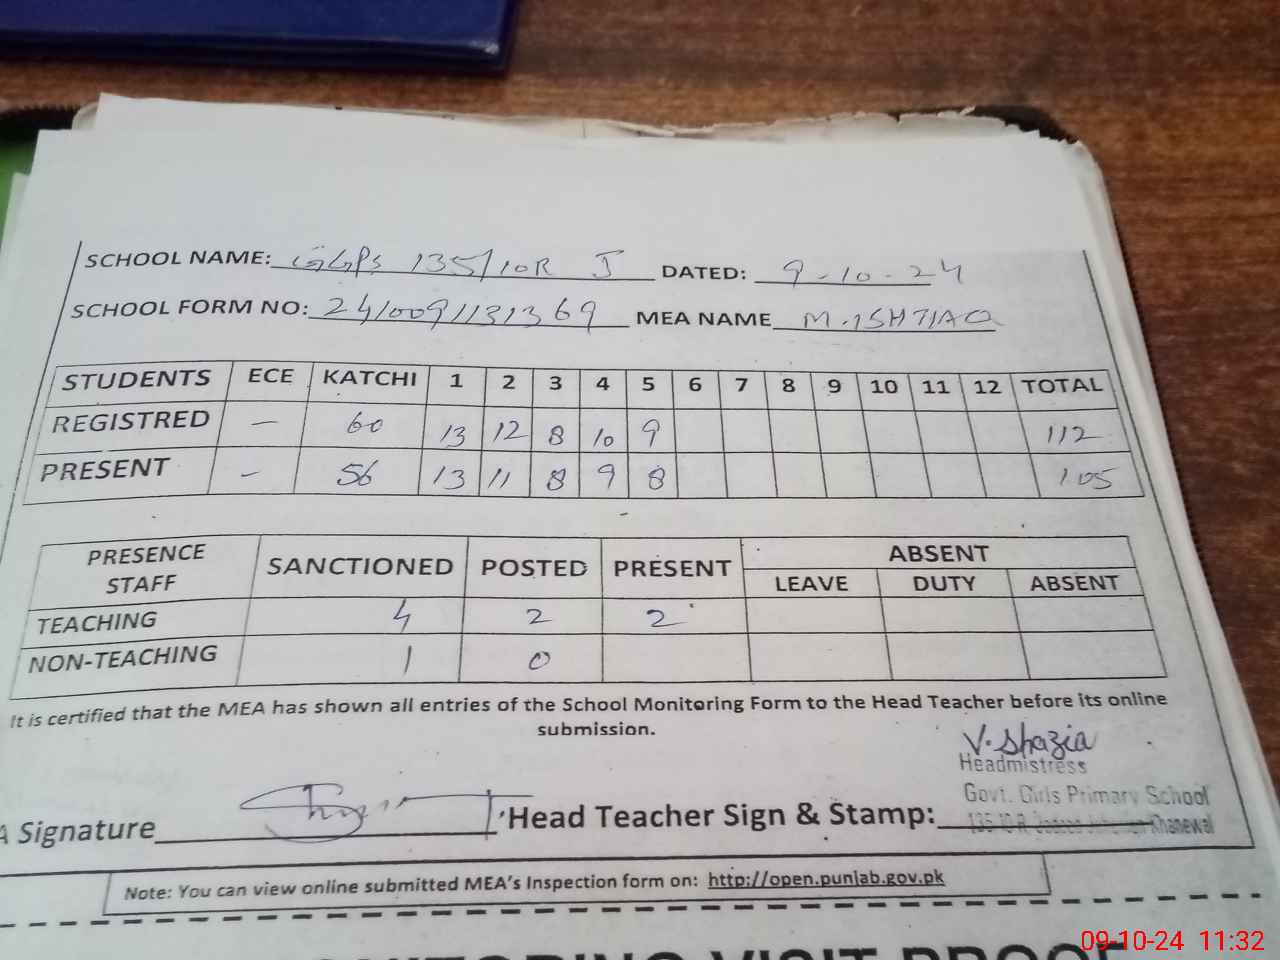 SCHOOL NAME: GGPS 135/10R J DATED: 9-10-24
SCHOOL FORM NO: 2410091131369 MEA NAME M.ISHTIAQ
STUDENTS ECE KATCHI 1 2 3 4 5 6 7 8 9 10 11 12 TOTAL
REGISTRED - 60 13 12 8 10 9 112
PRESENT - 56 13 11 8 9 8 105
PRESENCE STAFF SANCTIONED POSTED PRESENT ABSENT
LEAVE DUTY ABSENT
TEACHING 4 2 2
NON-TEACHING 1 0
It is certified that the MEA has shown all entries of the School Monitoring Form to the Head Teacher before its online
submission.
V. Shazia
Headmistress
Govt. Girls Primary School
A Signature Head Teacher Sign & Stamp: 135/10 R Khanewal
Note: You can view online submitted MEA's Inspection form on: http://open.punjab.gov.pk
VISIT PROOF
09-10-24 11:32